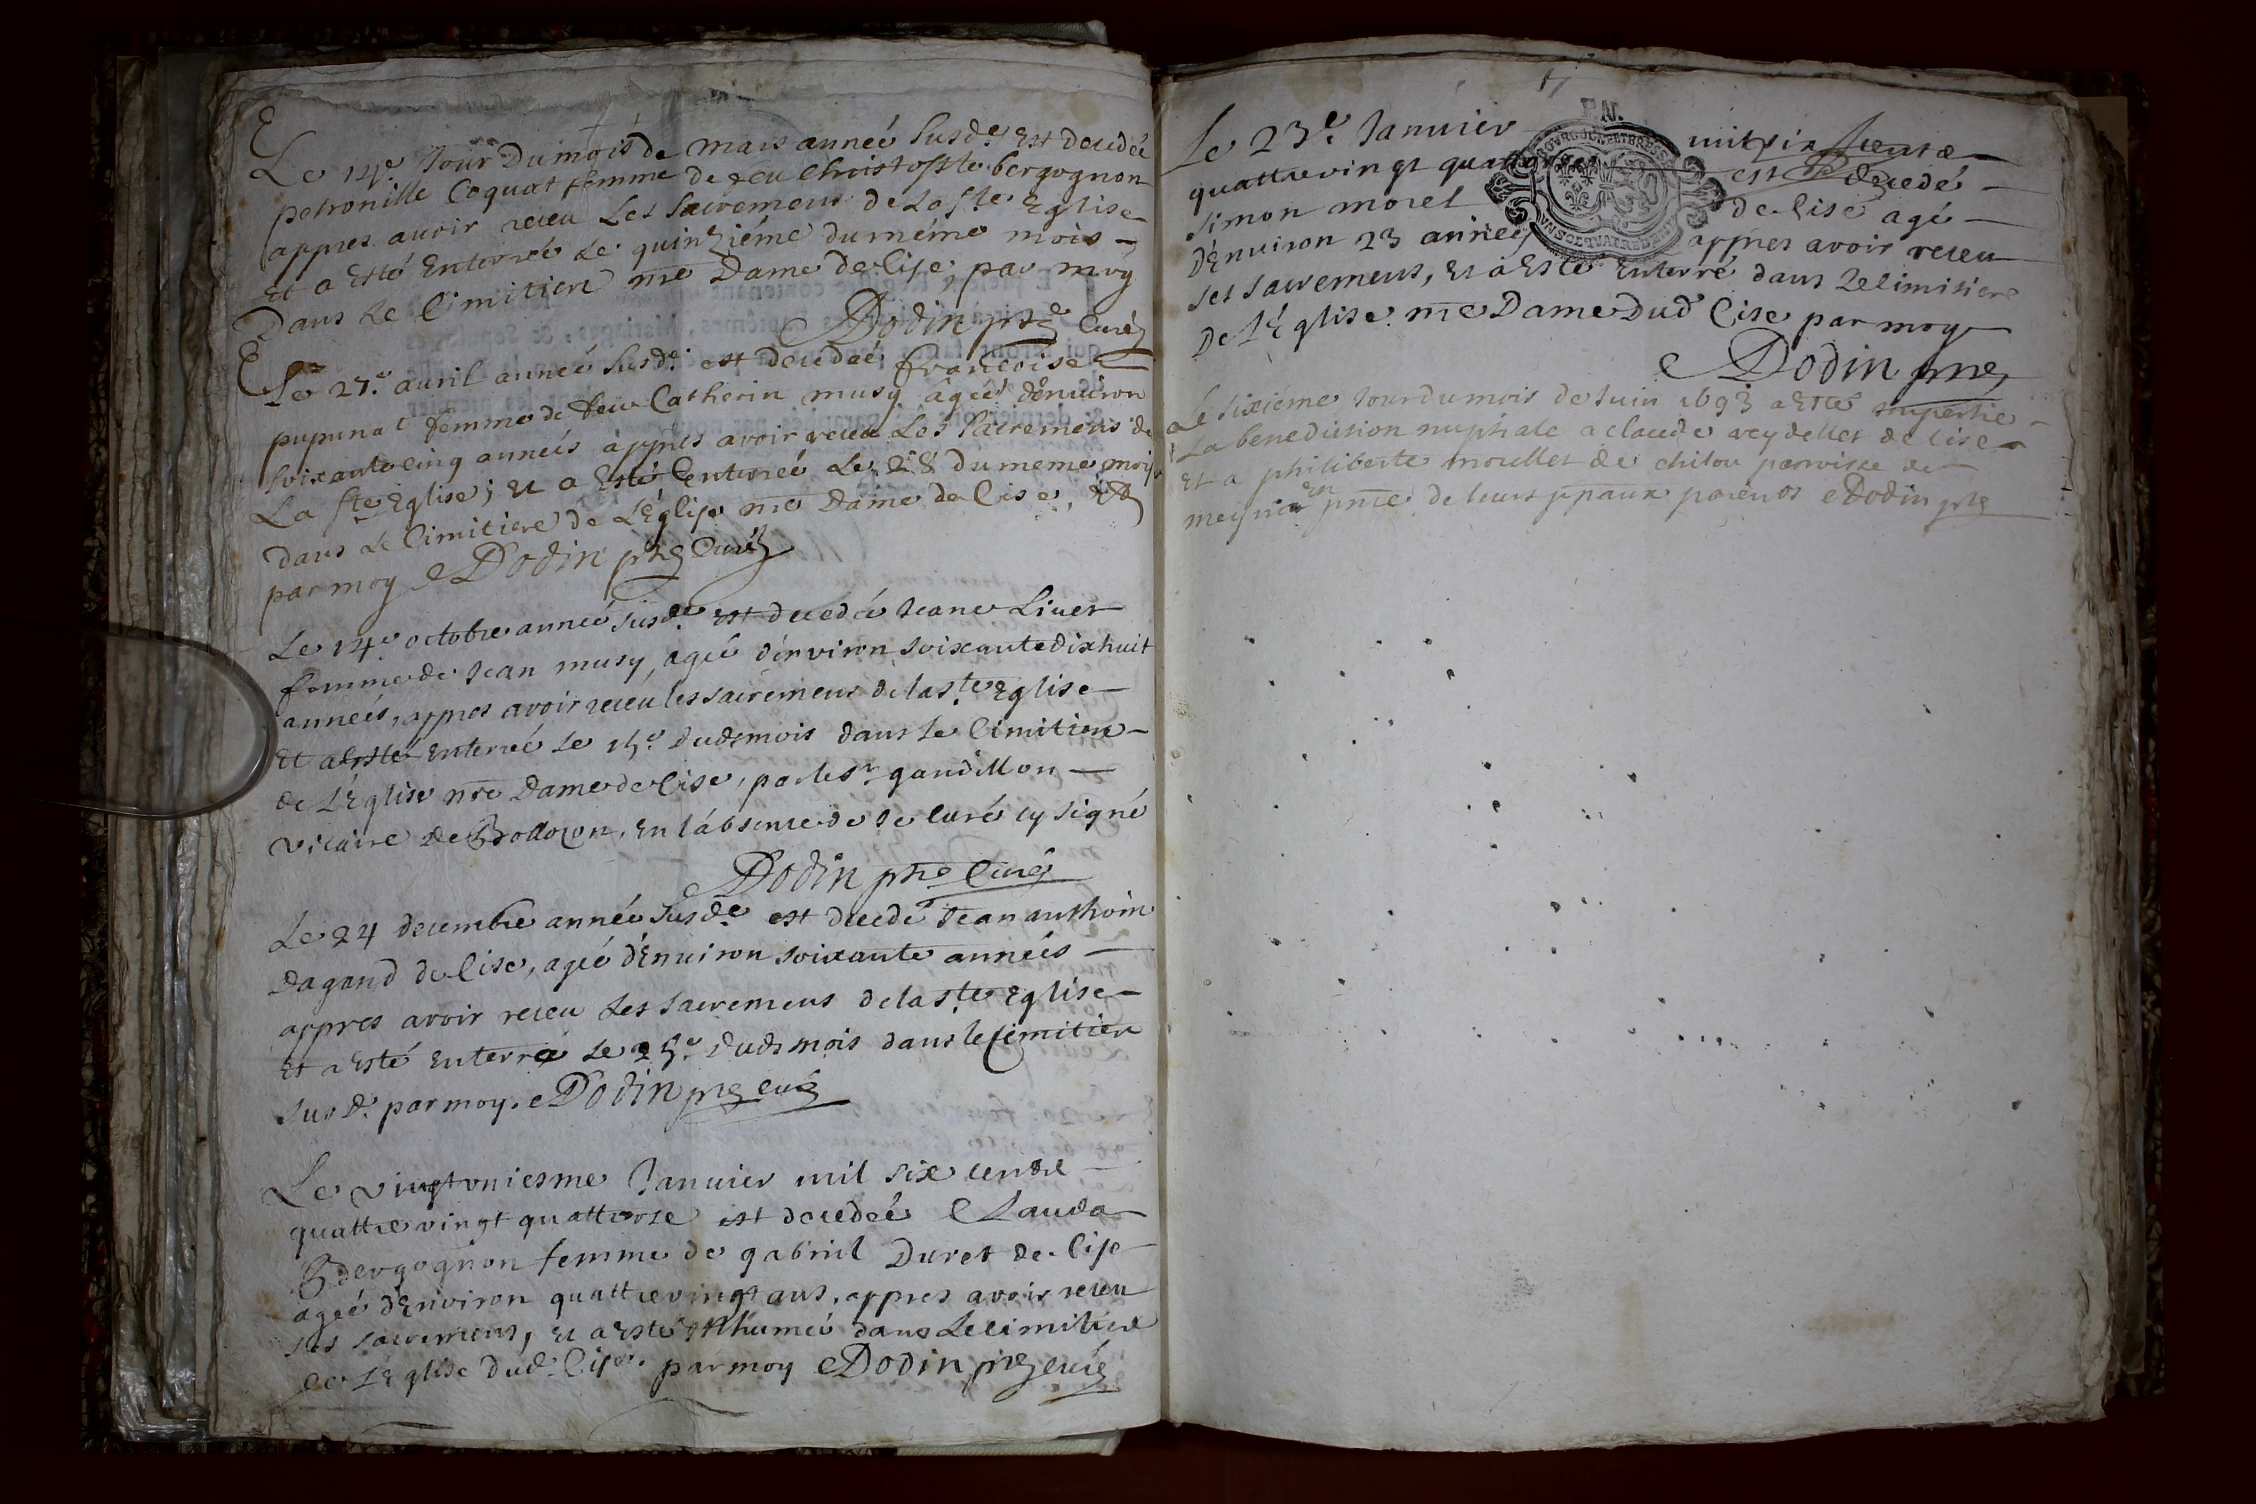 Le 14e Jour du mois de mars année susd.e Est decedée
petronille Coquat femme de feu Christofle bergognon
appres avoir receu Les sacremens de La s.te Eglise
Et a Esté Enterrée Le quinzième du méme mois
Dans Le Cimitiere nre Dame de Cise, par moy
Dodin ptre Curé
Le 27.e avril année susd.e est decedée françoise
pupunat femme de feu Catherin musy âgée dénviron
soixante cinq années appres avoir receu Les sacremens de
La s.te Eglise; Et a Esté Enterrée Le 28 du meme mois
dans Le Cimitiere de L'Eglise nre Dame de Cise,
par moy Dodin ptre Curé
Le 14e octobre année susd.e Est decedée Jeane Livet
femme de Jean musy, agée d'énviron soixante dix huit
années, appres avoir receu les sacremens de la s.te Eglise
Et a Esté Enterrée Le 15.e dud mois dans Le Cimitiere
de L'Eglise nre Dame de Cise, par le sr gaudillon
vicaire de En l'ábsence de Le curé cy signé
Dodin ptre Curé
Le 24 decembre année susd.e est decedé Jean anthoine
dagand de Cise, agé d'Environ soixante années
appres avoir receu Les sacremens de la s.te Eglise
Et a Esté Enterré Le 25.e dud mois dans le Cimitiere
susd. par moy. Dodin ptre curé
Le vingtuniesme Janvier mil six cents
quattre vingt quattorse est decedée Clauda
Bergognon femme de gabriel Duret de Cise
agée d'Environ quattre vingt ans, appres avoir receu
ses sacremens, Et a Esté inhumée dans Le cimitiere
de L'Eglise dud. Cise. par moy Dodin ptre curé
17
Le 23e Janvier mil six cents
quattre vingt quattorse est decedé
simon morel de Cise agé
d'Environ 23 années appres avoir receu
ses sacremens, Et a Esté Enterré dans Le cimitiere
De L'Eglise nre Dame Dud Cise par moy
Dodin ptre
Le sixieme Jour du mois de Juin 1693 a Esté impertie
La benediction nuptiale a claude reydellet de Cise
Et a philiberte moullet de chilou parroisse de
En pnce de leurs ppaux parents Dodin ptre